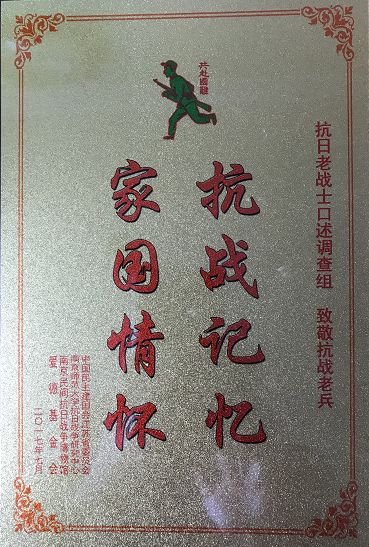 共赴國難
抗日老战士口述调查组 致敬抗战老兵
抗战记忆
家国情怀
中国民主建国会江苏省委员会
南京师范大学抗日战争研究中心
南京民间抗日战争博物馆
爱德基金会
二〇一七年七月